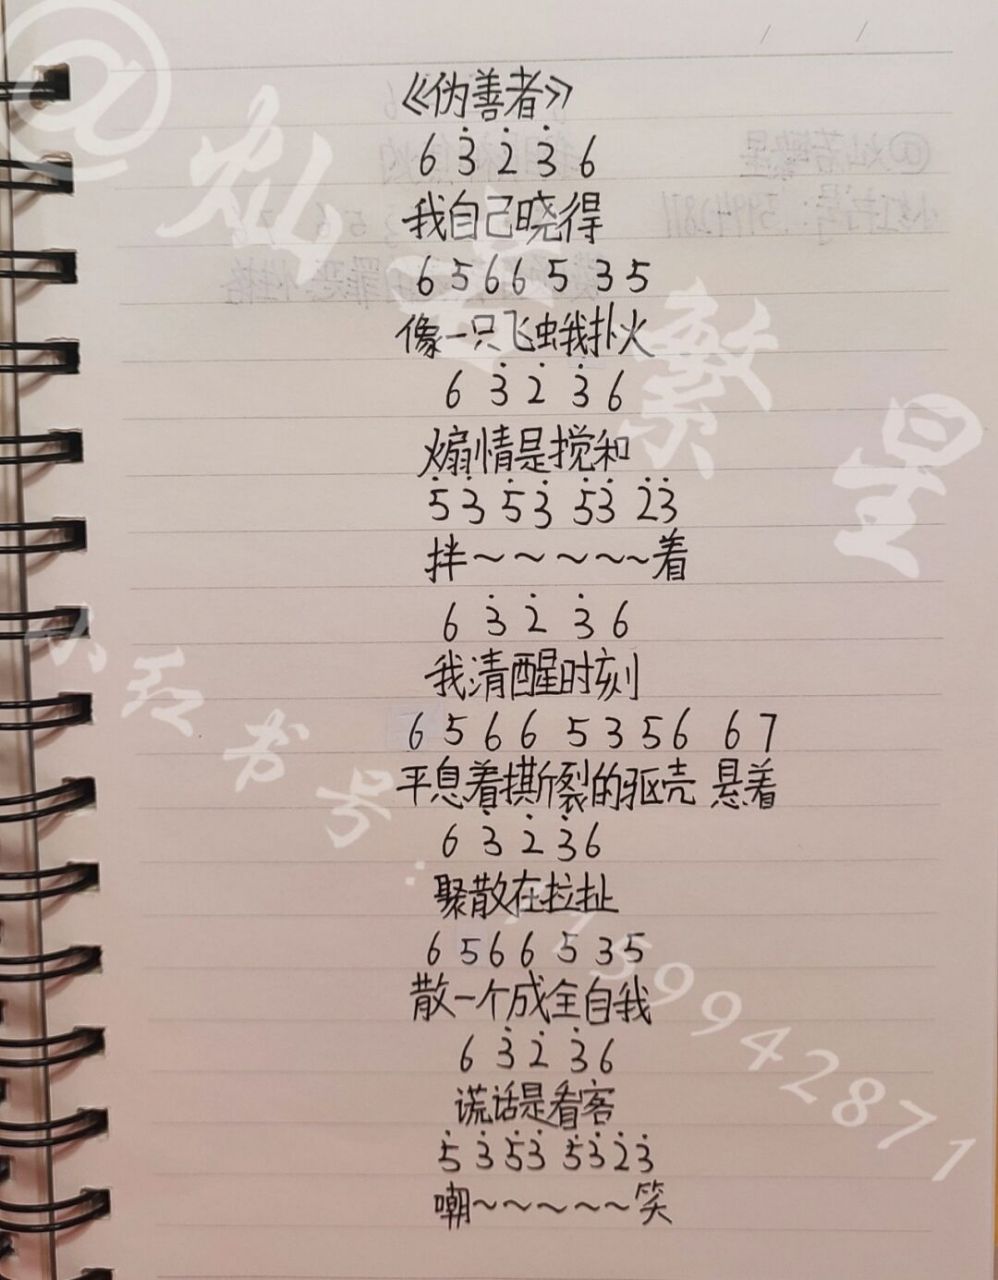 《伪善者》
6 3̇ 2̇ 3̇ 6
我自己晓得
6 5 6 6 5 3 5
像一只飞虫我扑火
6 3̇ 2̇ 3̇ 6
煽情是搅和
5̇ 3̇ 5̇ 3̇ 5̇ 3̇ 2̇ 3̇
拌~~~~~着
6 3̇ 2̇ 3̇ 6
我清醒时刻
6 5 6 6 5 3 5 6 6 7
平息着撕裂的驱壳 悬着
6 3̇ 2̇ 3̇ 6
聚散在拉扯
6 5 6 6 5 3 5
散一个成全自我
6 3̇ 2̇ 3̇ 6
谎话是看客
5̇ 3̇ 5̇ 3̇ 5̇ 3̇ 2̇ 3̇
嘲~~~~~笑